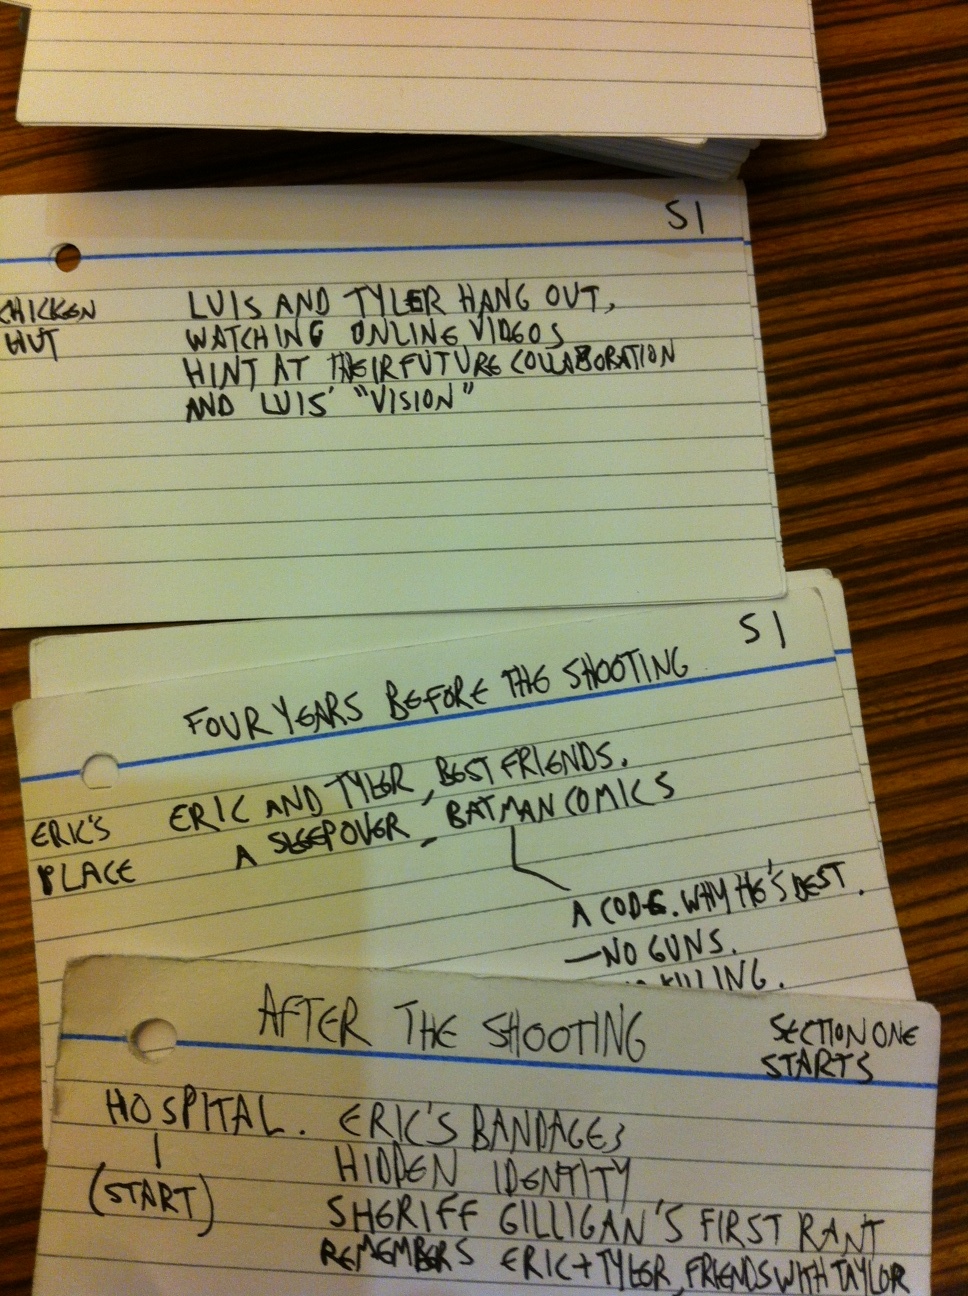 S1
CHICKEN HUT
LUIS AND TYLER HANG OUT,
WATCHING ONLINE VIDEOS
HINT AT THEIR FUTURE COLLABORATION
AND LUIS' "VISION"
S1
FOUR YEARS BEFORE THE SHOOTING
ERIC'S PLACE
ERIC AND TYLER, BEST FRIENDS.
A SLEEPOVER, BATMAN COMICS
A CODE. WHY HE'S BEST.
—NO GUNS.
KILLING.
AFTER THE SHOOTING
SECTION ONE
STARTS
HOSPITAL.
(START)
ERIC'S BANDAGES
HIDDEN IDENTITY
SHERIFF GILLIGAN'S FIRST RANT
REMEMBERS ERIC + TYLER, FRIENDS WITH TAYLOR